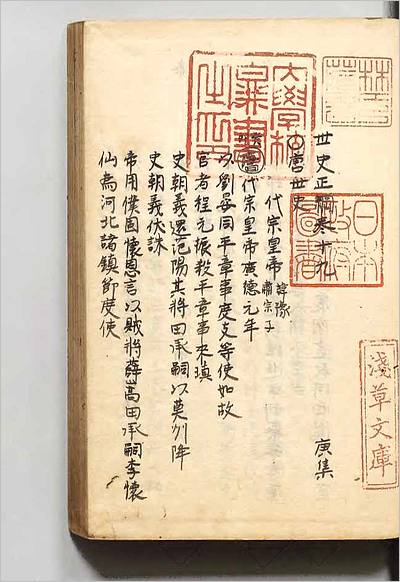 世史正綱卷十九 庚集
唐世史
代宗皇帝 諱豫 肅宗子
唐代宗皇帝廣德元年
以劉晏同平章事度支等使如故
宦者程元振殺平章事來瑱
史朝義還范陽其將田承嗣以莫州降
史朝義伏誅
帝用僕固懷恩言以賊將薛嵩田承嗣李懷
仙為河北諸鎮節度使
大學校
圖書
之印
日本
政府
圖書
淺草文庫